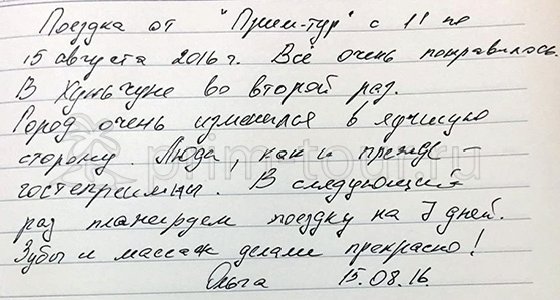 Поездка от "Прим-тур" с 11 по
15 августа 2016 г. Всё очень понравилось.
В Хуньчуне во второй раз.
Город очень изменился в лучшую
сторону. Люди, как и прежде -
гостеприимны. В следующий
раз планируем поездку на 7 дней.
Зубы и массаж делали прекрасно!
Ольга 15.08.16
primtour.ru